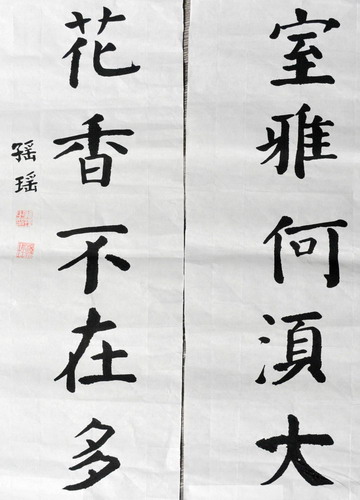 室雅何湏大
花香不在多
孫瑶